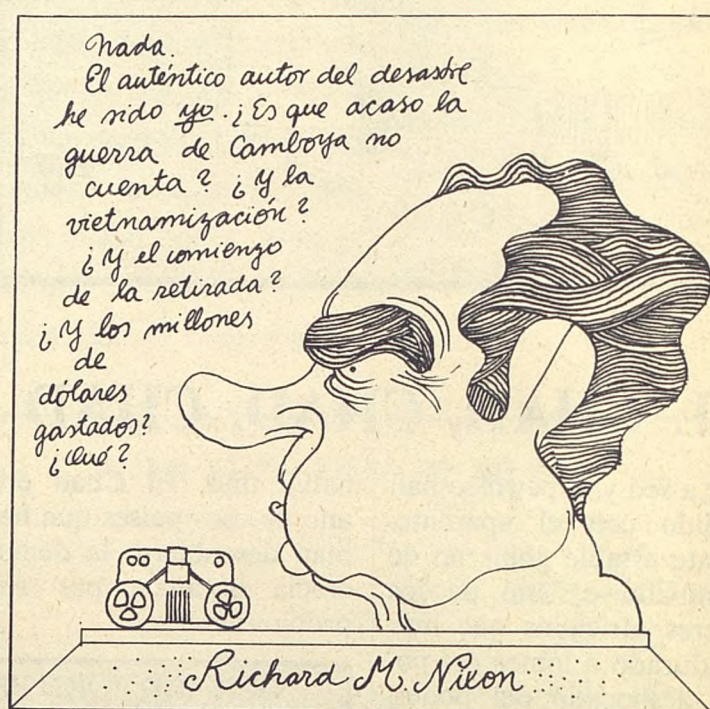 Nada.
El auténtico autor del desastre
he sido yo. ¿Es que acaso la
guerra de Camboya no
cuenta? ¿Y la
vietnamización?
¿Y el comienzo
de la retirada?
¿Y los millones
de
dólares
gastados?
¿Qué?
Richard M. Nixon